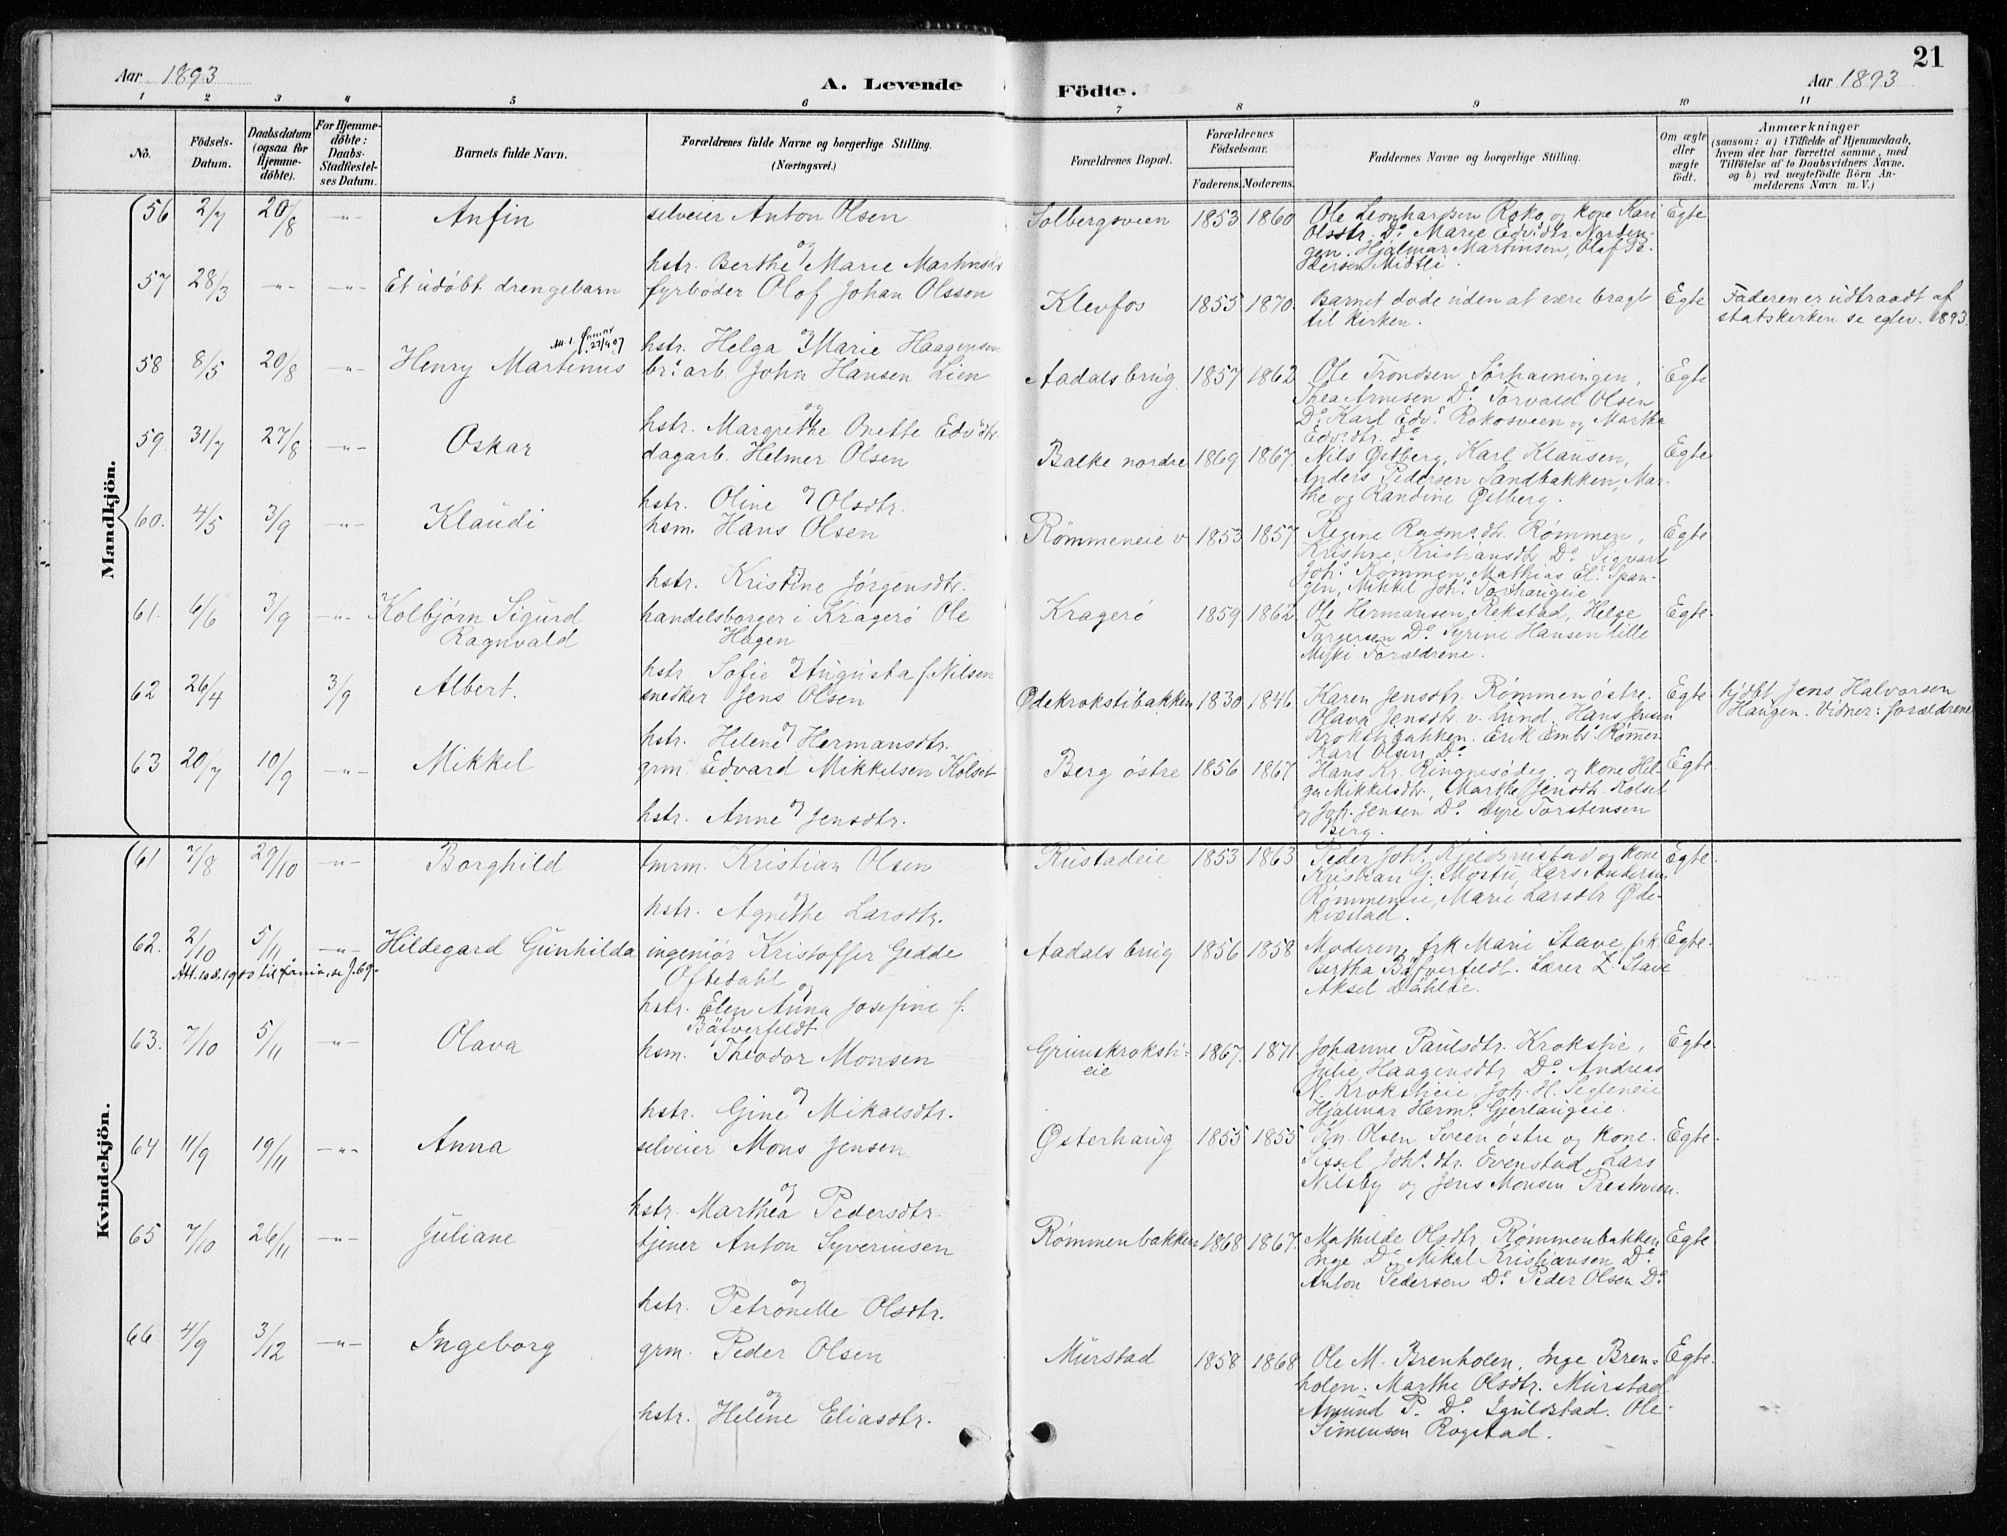 21
Aar 1893
A. Levende
Födte.
Aar 1893
1 2 3 4 5 6 7 8 9 10 11
No.
Födsels-
Datum.
Daabsdatum
(ogsaa for
Hjemme-
döbte).
For Hjemme-
döbte:
Daabs-
Stadfæstel-
ses Datum.
Barnets fulde Navn.
Forældrenes fulde Navne og borgerlige Stilling.
(Næringsvei.)
Forældrenes Bopæl.
Forældrenes
Födselsaar.
Faderens. Moderens.
Faddernes Navne og borgerlige Stilling.
Om ægte
eller
uægte
födt.
Anmærkninger
(saasom: a) i Tilfælde af Hjemmedaab,
hvem der har forrettet samme, med
Tilföielse af to Daabsvidners Navne,
og b) ved uægtefödte Börn An-
melderens Navn m. V.)
Mandkjön.
56 2/7 20/8 -"- Anfin
selveier Anton Olsen
og
hstr. Berthe Marie Martinsdtr
Solbergsveen 1853 1860
Ole Leonhardsen Roko og kone Kari
Olsdtr. Do Marie Edvdtr. Norden-
gen. Hjalmar Martinsen, Olaf Pe-
dersen Midtli.
Egte
57 28/3 -"- -"- Et udøbt drengebarn
fyrbøder Olof Johan Olsson
og
hstr. Helga Marie Haagensen
Klevfos 1855 1870.
Barnet døde uden at være bragt
til kirken.
Egte
Faderen er udtraadt af
statskirken se 1893.
58 8/5 20/8 -"- Henry Martinus
27/4 07
br. arb. John Hansen Lien
og
hstr. Margrethe Onette Edvdtr.
Aadals brug 1857 1862
Ole Trondsen Sørhauningen,
Thea Arnesen Do Torvald Olsen
Do Karl Edv. Rokosveen og Martha
Edvdtr. Do
Egte
59 31/7 27/8 -"- Oskar
dagarb. Helmer Olsen
og
hstr. Oline Olsdtr.
Balke nordre 1869 1867.
Nils Østberg, Karl Klausen,
Anders Pedersen Sandbakken, Mar-
the og Randine Østberg.
Egte
60. 4/5 3/9 -"- Klaudi
hsm. Hans Olsen
og
hstr. Kristine Jørgensdtr.
Rømmeneie v 1853 1857
Regine Rasmsdtr. Rømmen,
Kristine Kristiansdtr Do Sigvart
Joh. Rømmen, Mathias El. Span-
gen, Mikkel Joh. Torhaugeie
Egte
61. 6/6 3/9 -"- Kolbjørn Sigurd
Ragnvald
handelsborger i Kragerø Ole
Hagen
og
hstr Sofie Augusta f. Nilsen
Kragerø 1859 1862
Ole Hermansen Rekstad, Helge
Torgersen Do Syrine Hansen lille
Forældrene.
Egte.
62 26/4 3/9 Albert.
snedker Jens Olsen
og
hstr. Helene Hermansdtr.
Ødekrokstibakken 1830 1846
Karen Jensdtr. Rømmen østre.
Olava Jensdtr. v. Lund. Hans Jensen
Krokstibakken. Erik Embr. Rømmen
Karl Olsen Do
Egte
hjdbt Jens Halvorsen
Haugen. Vidner: forældrene
63 20/7 10/9 -"- Mikkel
grm. Edvard Mikkelsen Kolset
og
hstr. Anne Jensdtr.
Berg østre 1856 1867
Hans Kr. Ringnesødeg. og kone Hel-
ga Mikkelsdtr, Marthe Jensdtr. Kolset
og Joh. Jensen Do Syre Torstensen
Berg.
Egte.
Kvindekjön.
61 7/8 29/10 -"- Borghild
tmrm. Kristian Olsen
og
hstr. Agnethe Larsdtr.
Rustadeie 1853 1863
Peder Joh. Kjeldsrustad og kone
Kristian G. Mostu, Lars Andersen
Rømmeneie, Marie Larsdtr Øde-
kvæstad.
Egte.
62. 2/10 5/11 -"- Hildegard Gunhilda
Att. 10 til
ingeniør Kristoffer Gedde
Oftedahl og
hstr. Elen Anna Josefine f.
Bäfverfeldt
Aadals brug 1856 1858
Moderen, frk Marie Stave, frk.
Bertha Bäfverfeldt. Lærer Z. Stave
Aksel Dahlde.
Egte.
63. 7/10 5/11 -"- Olava
hsm. Theodor Monsen
og
hstr. Gine Mikalsdtr.
Grimskroksti-
eie
1867. 1871
Johanne Paulsdtr. Krokstie,
Julie Haagensdtr. Do Andreas
N. Krokstieie Joh. H. Segleneie
Hjalmar Herm. Gjerlaugeie.
Egte.
64 11/9 19/11 -"- Anna
selveier Mons Jensen
og
hstr. Marthea Pedersdtr.
Østerhaug 1855 1855
Kn. Olsen Sveen østre og kone.
Sissel Joh. dtr. Evenstad, Lars
Nilsby og Jens Monsen Prestveen.
Egte.
65 7/10 26/11 -"- Juliane
tjener Anton Syverinsen
og
hstr. Petronelle Olsdtr.
Rømmenbakken 1868 1867.
Mathilde Olsdtr Rømmenbakken
Inge Do Mikal Kristiansen Do
Anton Pedersen Do Peder Olsen Do
Egte
66. 4/9 3/12 -"- Ingeborg
grm. Peder Olsen
og
hstr. Helene Eliasdtr.
Murstad 1858 1868
Ole M. Brenholen, Inge Bren-
holen. Marthe Olsdtr. Murstad
Amund P. Do Ole
Simensen Rogstad.
Egte.